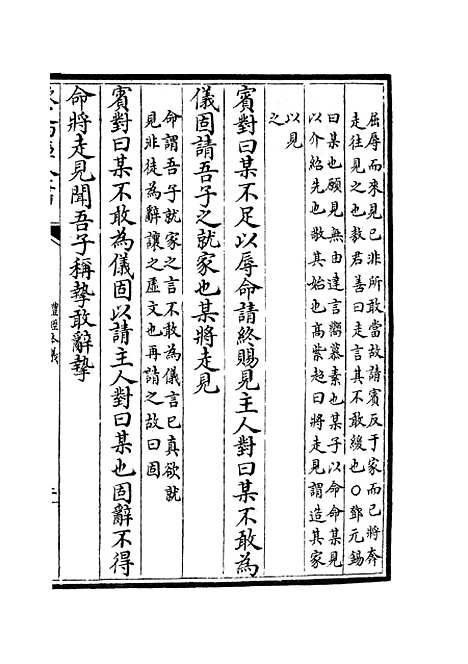 屈辱而來見已非所敢當故請賓反于家而已將奔
走往見之也敖君善曰走言其不敢緩也○鄧元錫
曰某也願見無由達言嚮慕素也某子以命命某見
以介紹先也敬其始也髙紫超曰將走見謂造其家
以見
之
賓對曰某不足以辱命請終賜見主人對曰某不敢為
儀固請吾子之就家也某將走見
命謂吾子就家之言不敢為儀言已真欲就
見非徒為辭讓之虛文也再請之故曰固
賓對曰某不敢為儀固以請主人對曰某也固辭不得
命將走見聞吾子稱摯敢辭摯
禮經本義